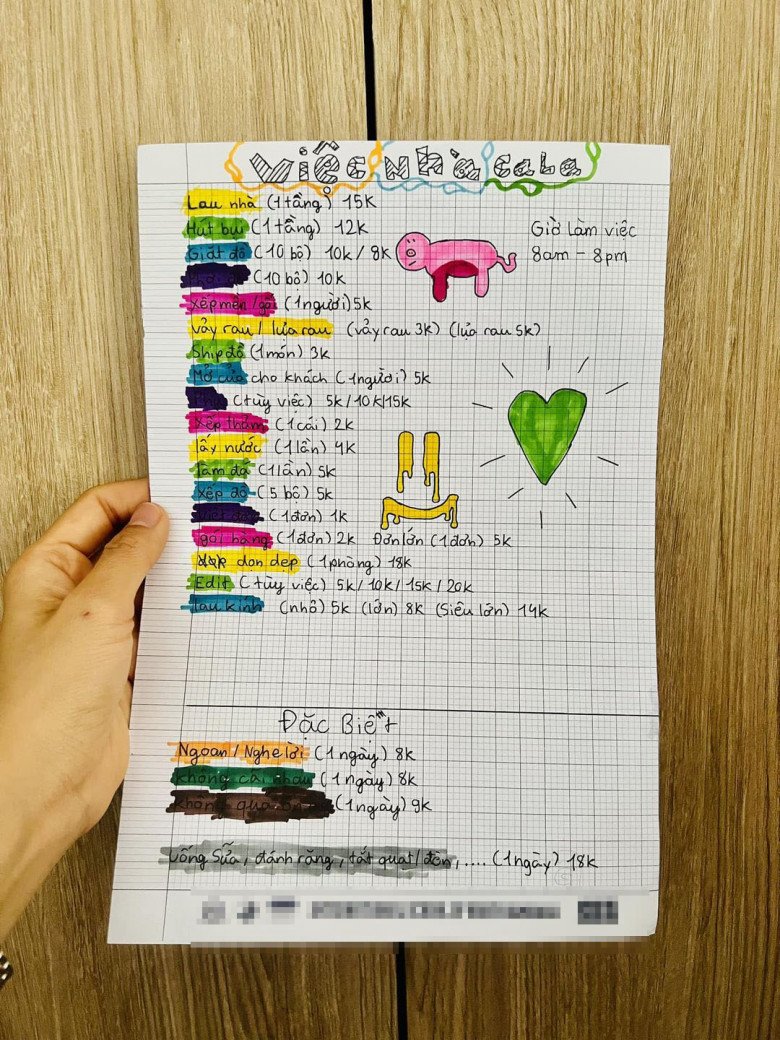 việc nhà cala
Lau nhà (1 tầng) 15K
Hút bụi (1 tầng) 12K
Giặt đồ (10 bộ) 10k / 8k
(10 bộ) 10k
Giờ làm việc
8am - 8pm
Xếp mền/gối (1 người) 5k
Vảy rau / lựa rau (vảy rau 3k) (lựa rau 5k)
Ship đồ (1 món) 3k
Mở cửa cho khách (1 người) 5k
(tùy việc) 5k/10k/15k
Xếp thảm (1 cái) 2k
lấy nước (1 lần) 4k
làm đá (1 lần) 5k
xếp đồ (5 bộ) 5k
(1 đơn) 1k
gói hàng (1 đơn) 2k Đơn lớn (1 đơn) 5k
dọn dẹp (1 phòng) 18k
Edit (tùy việc) 5k/10k/15k/20k
lau kính (nhỏ) 5k (lớn) 8k (Siêu lớn) 14k
Đặc Biệt
Ngoan / Nghe lời (1 ngày) 8k
không cãi nhau (1 ngày) 8k
không quạu (1 ngày) 9k
Uống Sữa, đánh răng, tắt quạt/đèn, .... (1 ngày) 18k